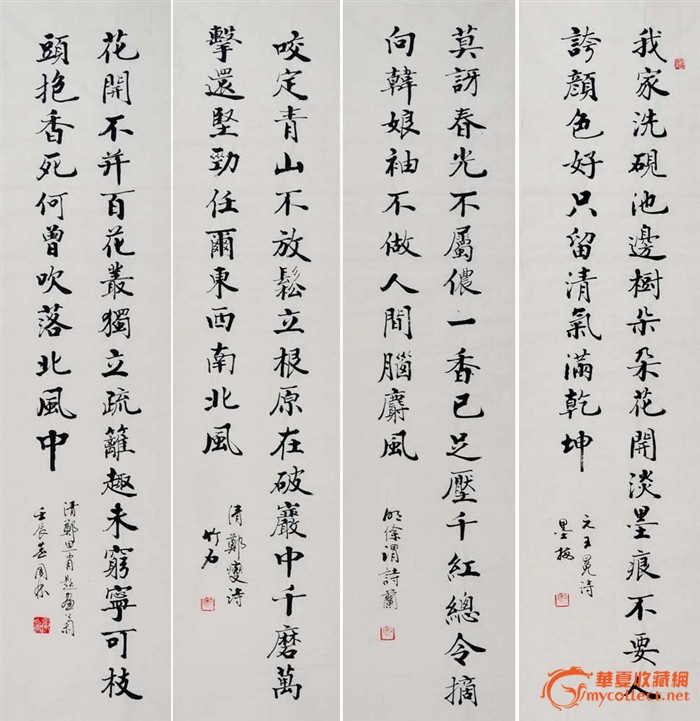 我家洗硯池邊樹朵朵花開淡墨痕不要人
誇顏色好只留清氣滿乾坤
元王冕詩
墨梅
莫訝春光不屬儂一香已足壓千紅總令摘
向韓娘袖不做人間腦麝風
明徐渭詩蘭
咬定青山不放鬆立根原在破巖中千磨萬
擊還堅勁任爾東西南北風
清鄭燮詩
竹石
花開不并百花叢獨立疏籬趣未窮寧可枝
頭抱香死何曾吹落北風中
清鄭思肖題畫菊
壬辰
華夏收藏網
mycollect.net